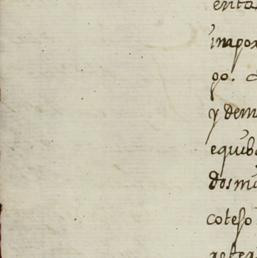 enta
impor
go.
y dem
equiba
dosmil
cotejo